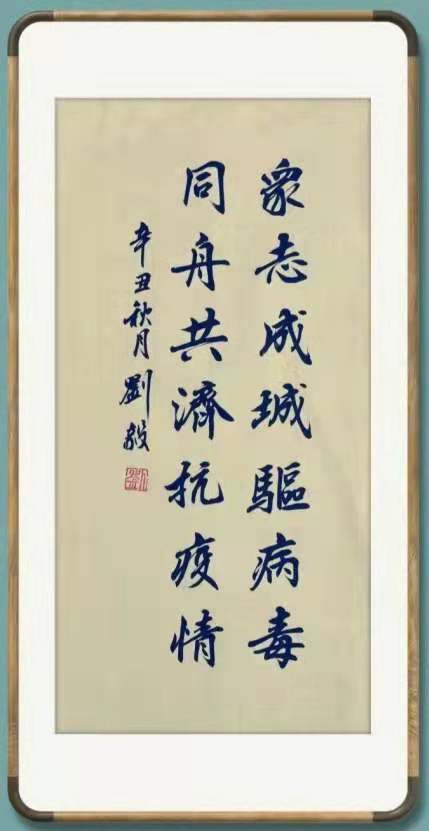 眾志成城驅病毒
同舟共濟抗疫情
辛丑秋月劉毅